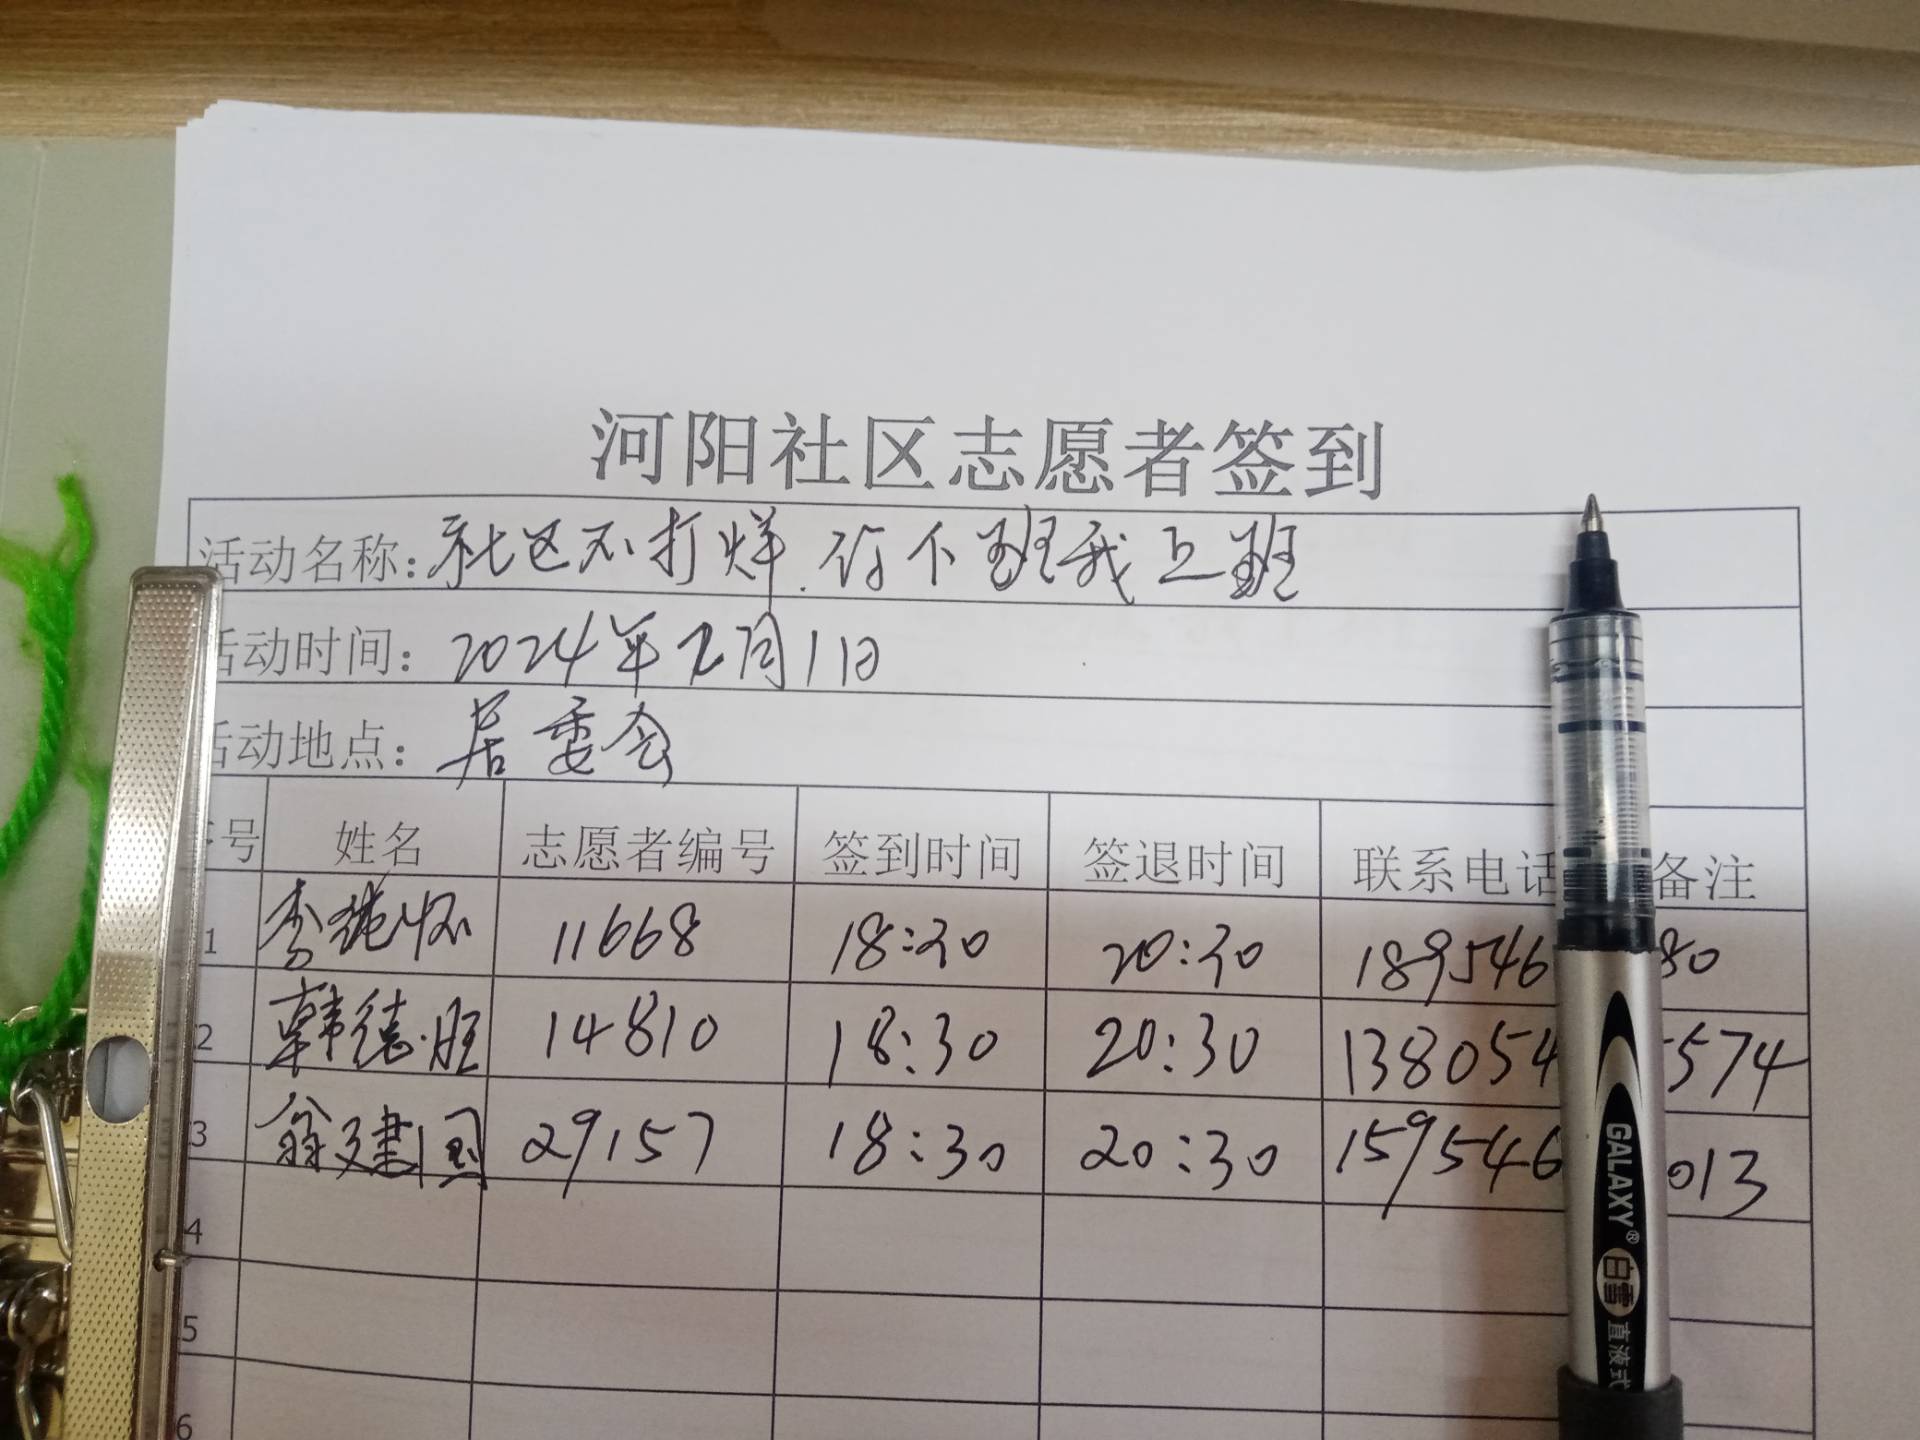 河阳社区志愿者签到
活动名称：社区不打烊.你下班我上班
活动时间：2024年2月1日
活动地点：居委会
序号 姓名 志愿者编号 签到时间 签退时间 联系电话 备注
1 李 怀 11668 18:30 20:30 189546 80
2 韩德旺 14810 18:30 20:30 138054 5574
3 翁建国 29157 18:30 20:30 159546 013
4
5
6
GALAXY®
白雪 直液式